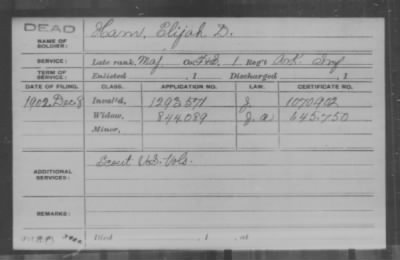 DEAD
NAME OF SOLDIER: Ham, Elijah D.
SERVICE: Late rank, Maj Co. F&S. 1 Reg't Ark Inf
TERM OF SERVICE: Enlisted , 1 Discharged , 1
DATE OF FILING. CLASS. APPLICATION NO. LAW. CERTIFICATE NO.
1902 Dec 8 Invalid, 1293571 J. 1070902
Widow, 844089 J. a 645.750
Minor,
ADDITIONAL SERVICES: Scout U.S. Vols.
REMARKS:
Died , 1 , at